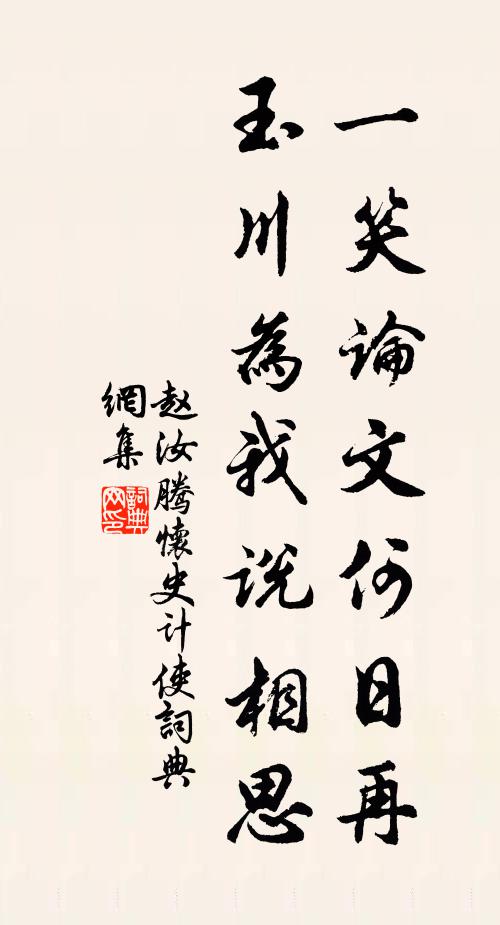 一笑論文何日再
玉川為我説相思
赵汝腾懷史计使詞典
網集
詞典
网印